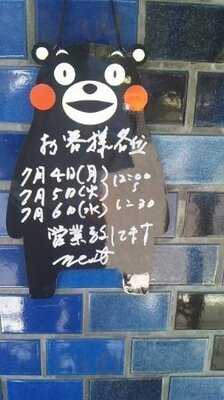 お客様各位
7月4日(月) 12:00
7月5日(火) 〜
7月6日(水) 12:30
営業致してます